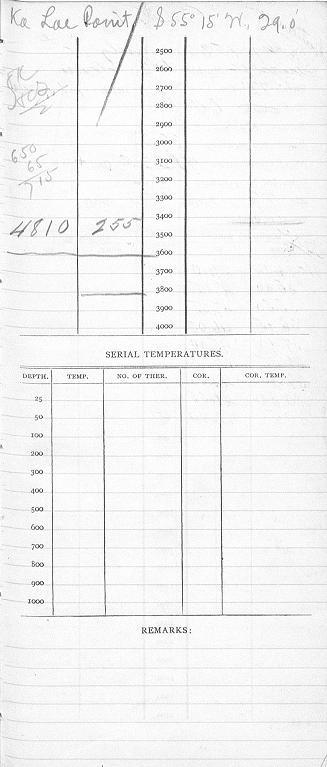 Ka Lae Point, S 55° 15' W, 29.0'
2500
2600
2700
2800
2900
3000
650
3100
65
3200
715
3300
3400
4810 255
3500
3600
3700
3800
3900
4000
SERIAL TEMPERATURES.
DEPTH. TEMP. NO. OF THER. COR. COR. TEMP.
25
50
100
200
300
400
500
600
700
800
900
1000
REMARKS: